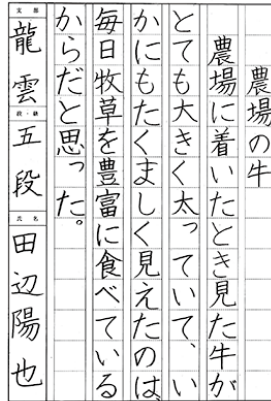 農場の牛
農場に着いたとき見た牛が
とても大きく太っていて、い
かにもたくましく見えたのは、
毎日牧草を豊富に食べている
からだと思った。
支部 龍雲 段・級 五段 氏名 田辺陽也